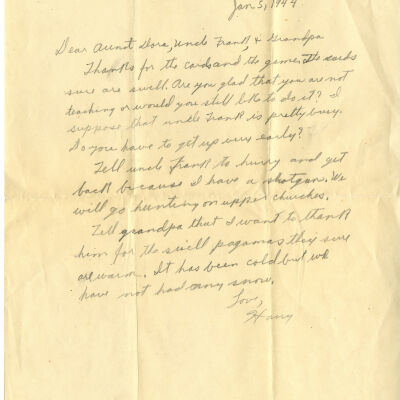 Jan 5, 1944
Dear Aunt Dora, Uncle Frank, & Grandpa
Thanks for the cards and the games. The cards
sure are swell. Are you glad that you are not
teaching or would you still like to do it? I
suppose that uncle Frank is pretty busy.
Do you have to get up very early?
Tell uncle Frank to hurry and get
back because I have a shotgun. We
will go hunting on upper churches.
Tell grandpa that I want to thank
him for the swell pagamas they sure
are warm. It has been cold but we
have not had any snow.
Love,
Harry